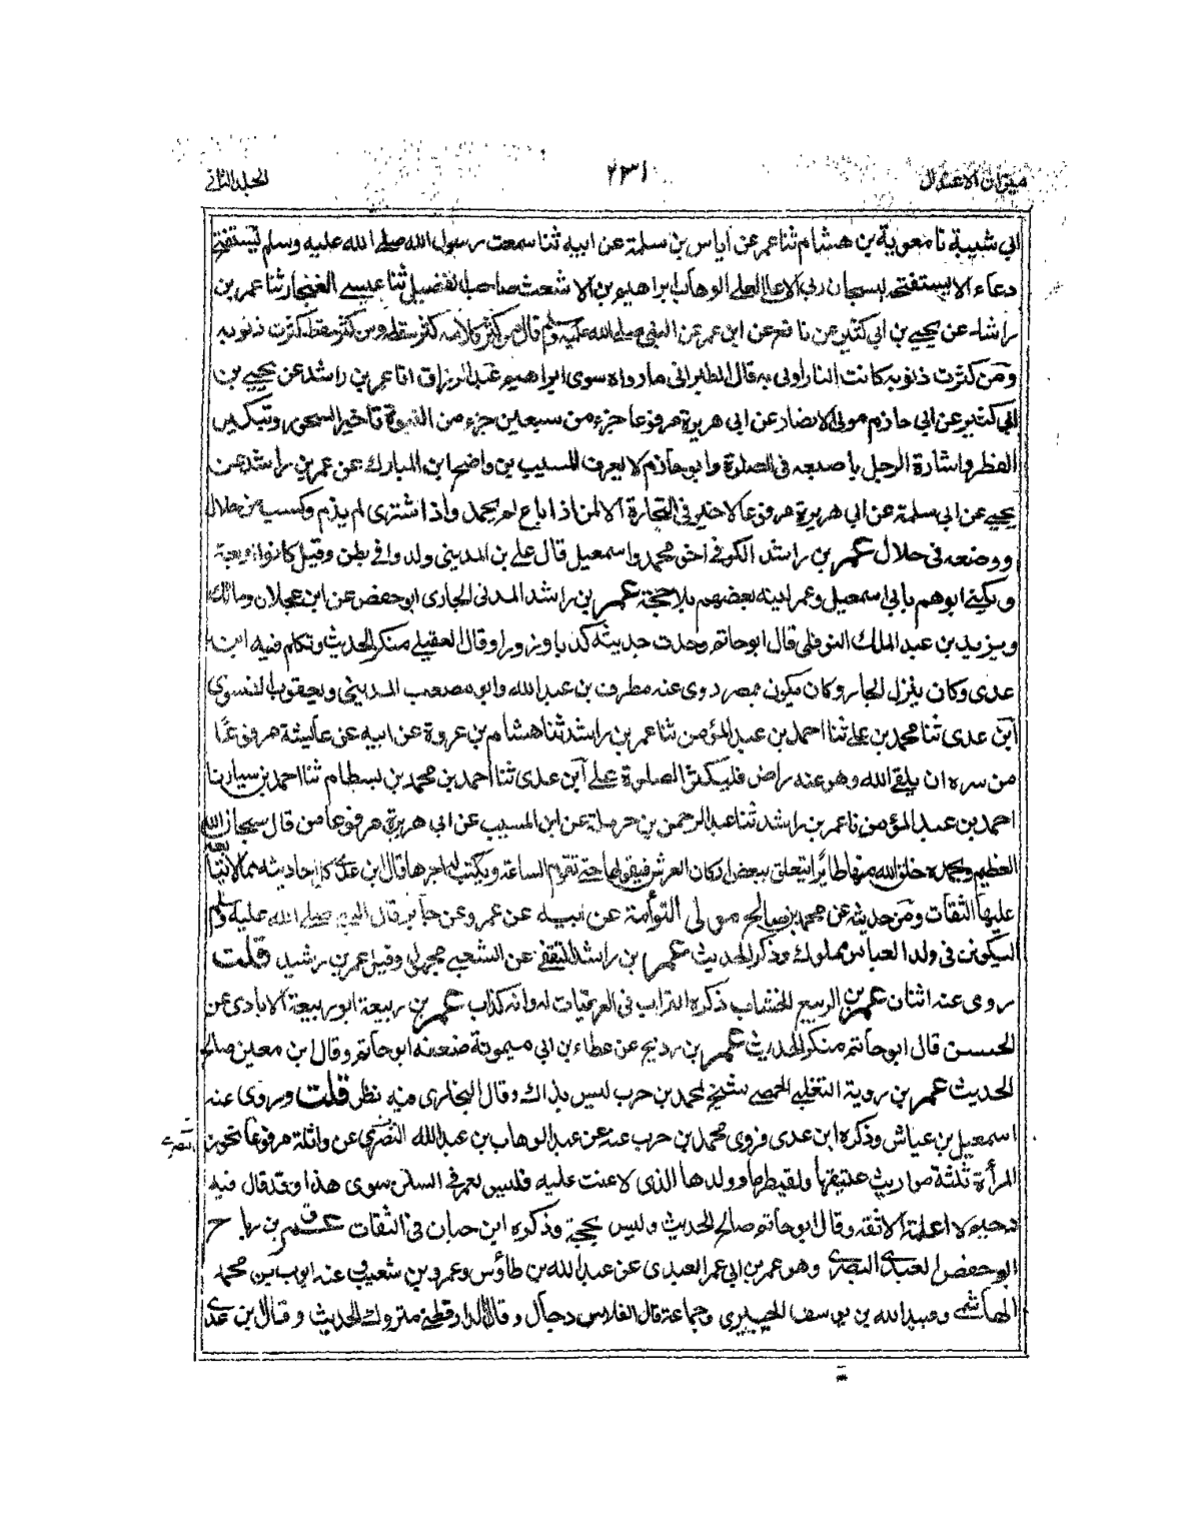 ميزان الاعتدال
٢٣١
الجلد الثانى
ابي شيبة نا معوية بن هشام ثنا عمر عن اياس بن سلمة عن ابيه ثنا سمعت رسول الله صلے الله عليه وسلم يستفتح
دعاء الا يستفتحه بسبحان ربي الاعلى العلى الوهاب ابراهيم بن الاشعث صاحب الفضيل ثنا عيسے الغنجار ثنا عمر بن
راشد عن يحيے بن ابي كثير عن نافع عن ابن عمر عن النبي صلے الله عليه وسلم قال من كثر كلامه كثر سقطه ومن كثر سقطه كثرت ذنوبه
ومن كثرت ذنوبه كانت النار اولى به قال الطبراني ما رواه سوى ابراهيم عبد الرزاق انا عمر بن راشد عن يحيے بن
ابي كثير عن ابي حازم مولى الانصار عن ابي هريرة مرفوعا جزء من سبعين جزء من النبوة تاخير السحور وتبكير
الفطر واشارة الرجل باصبعه فى الصلوة وابو حازم لا يعرف المسيب بن واضح ابن المبارك عن عمر بن راشد عن
يحيے عن ابي سلمة عن ابي هريرة مرفوعا لا خير فى التجارة الا لمن اذا باع لم يحمد واذا اشترى لم يذم وكسب من حلال
ووضعه فى حلال عمر بن راشد الكوفى اخو محمد واسمعيل قال على بن المدينى ولدوا فى بطن وقيل كانوا اربعة
ويكنے ابوهم بابى اسمعيل وعمر لينه بعضهم بلا حجة عمر بن راشد المدنى الجارى ابو حفص عن ابن عجلان ومالك
ويزيد بن عبد الملك النوفلى قال ابو حاتم وجدت حديثه كذبا وزورا وقال العقيلے منكر الحديث وتكلم فيه ابن
عدى وكان ينزل الجار وكان يكون بمصر روى عنه مطرف بن عبد الله وابو مصعب المدينى ويعقوب الفسوى
ابن عدى ثنا محمد بن علے ثنا احمد بن عبد المؤمن ثنا عمر بن راشد ثنا هشام بن عروة عن ابيه عن عائشة مرفوعًا
من سره ان يلقے الله وهو عنه راض فليكثر الصلوة علے ابن عدى ثنا احمد بن محمد بن بسطام ثنا احمد بن سيار نا
احمد بن عبد المؤمن نا عمر بن راشد ثنا عبد الرحمن بن حرملة عن ابن المسيب عن ابي هريرة مرفوعا من قال سبحان الله
العظيم وبحمده خلق الله منها طائرا يتعلق ببعض اركان العرش فيقولها حتے تقوم الساعة ويكتب له اجرها قال بن عدى كل احاديثه مما لا يتابعه
عليها الثقات ومن حديثه عن محمد بن صالح مولى التوأمة عن ابيه عن عمرو عن جابر قال النبي صلے الله عليه وسلم
ليكونن فى ولد العباس مملوك وذكر الحديث عمر بن راشد الثقفے عن الشعبے مجهول وقيل عمر بن رشيد قلت
روى عنه اثنان عمر بن الربيع الخشاب ذكره القراب فى الوفيات له وانه كذاب عمر بن ربيعة ابو ربيعة الايادى عن
الحسن قال ابو حاتم منكر الحديث عمر بن رديح عن عطاء بن ابي ميمونة ضعفه ابو حاتم وقال ابن معين صالح
الحديث عمر بن روبة التغلبے الحمصے شيخ لمحمد بن حرب ليس بذاك وقال البخارى فيه نظر قلت ويروى عنه
اسمعيل بن عياش وذكره ابن عدى فروى محمد بن حرب عنه عن عبد الوهاب بن عبد الله النصرى عن واثلة مرفوعا تحوز
المرأة ثلثة مواريث عتيقها ولقيطها وولدها الذى لاعنت عليه فليس لعمر فى السنن سوى هذا وقد قال فيه
دحيم لا اعلمه الا ثقة وقال ابو حاتم صالح الحديث وليس بحجة وذكره ابن حبان فى الثقات ق عمر بن رباح
ابو حفص العبدى البصرى وهو عمر بن ابي عمر العبدى عن عبد الله بن طاؤس وعمرو بن شعيب وعنه ايوب بن محمد
الهاشمے وعبيد الله بن يوسف الجبيرى وجماعة قال الفلاس دجال وقال الدارقطنے متروك الحديث وقال بن عدى